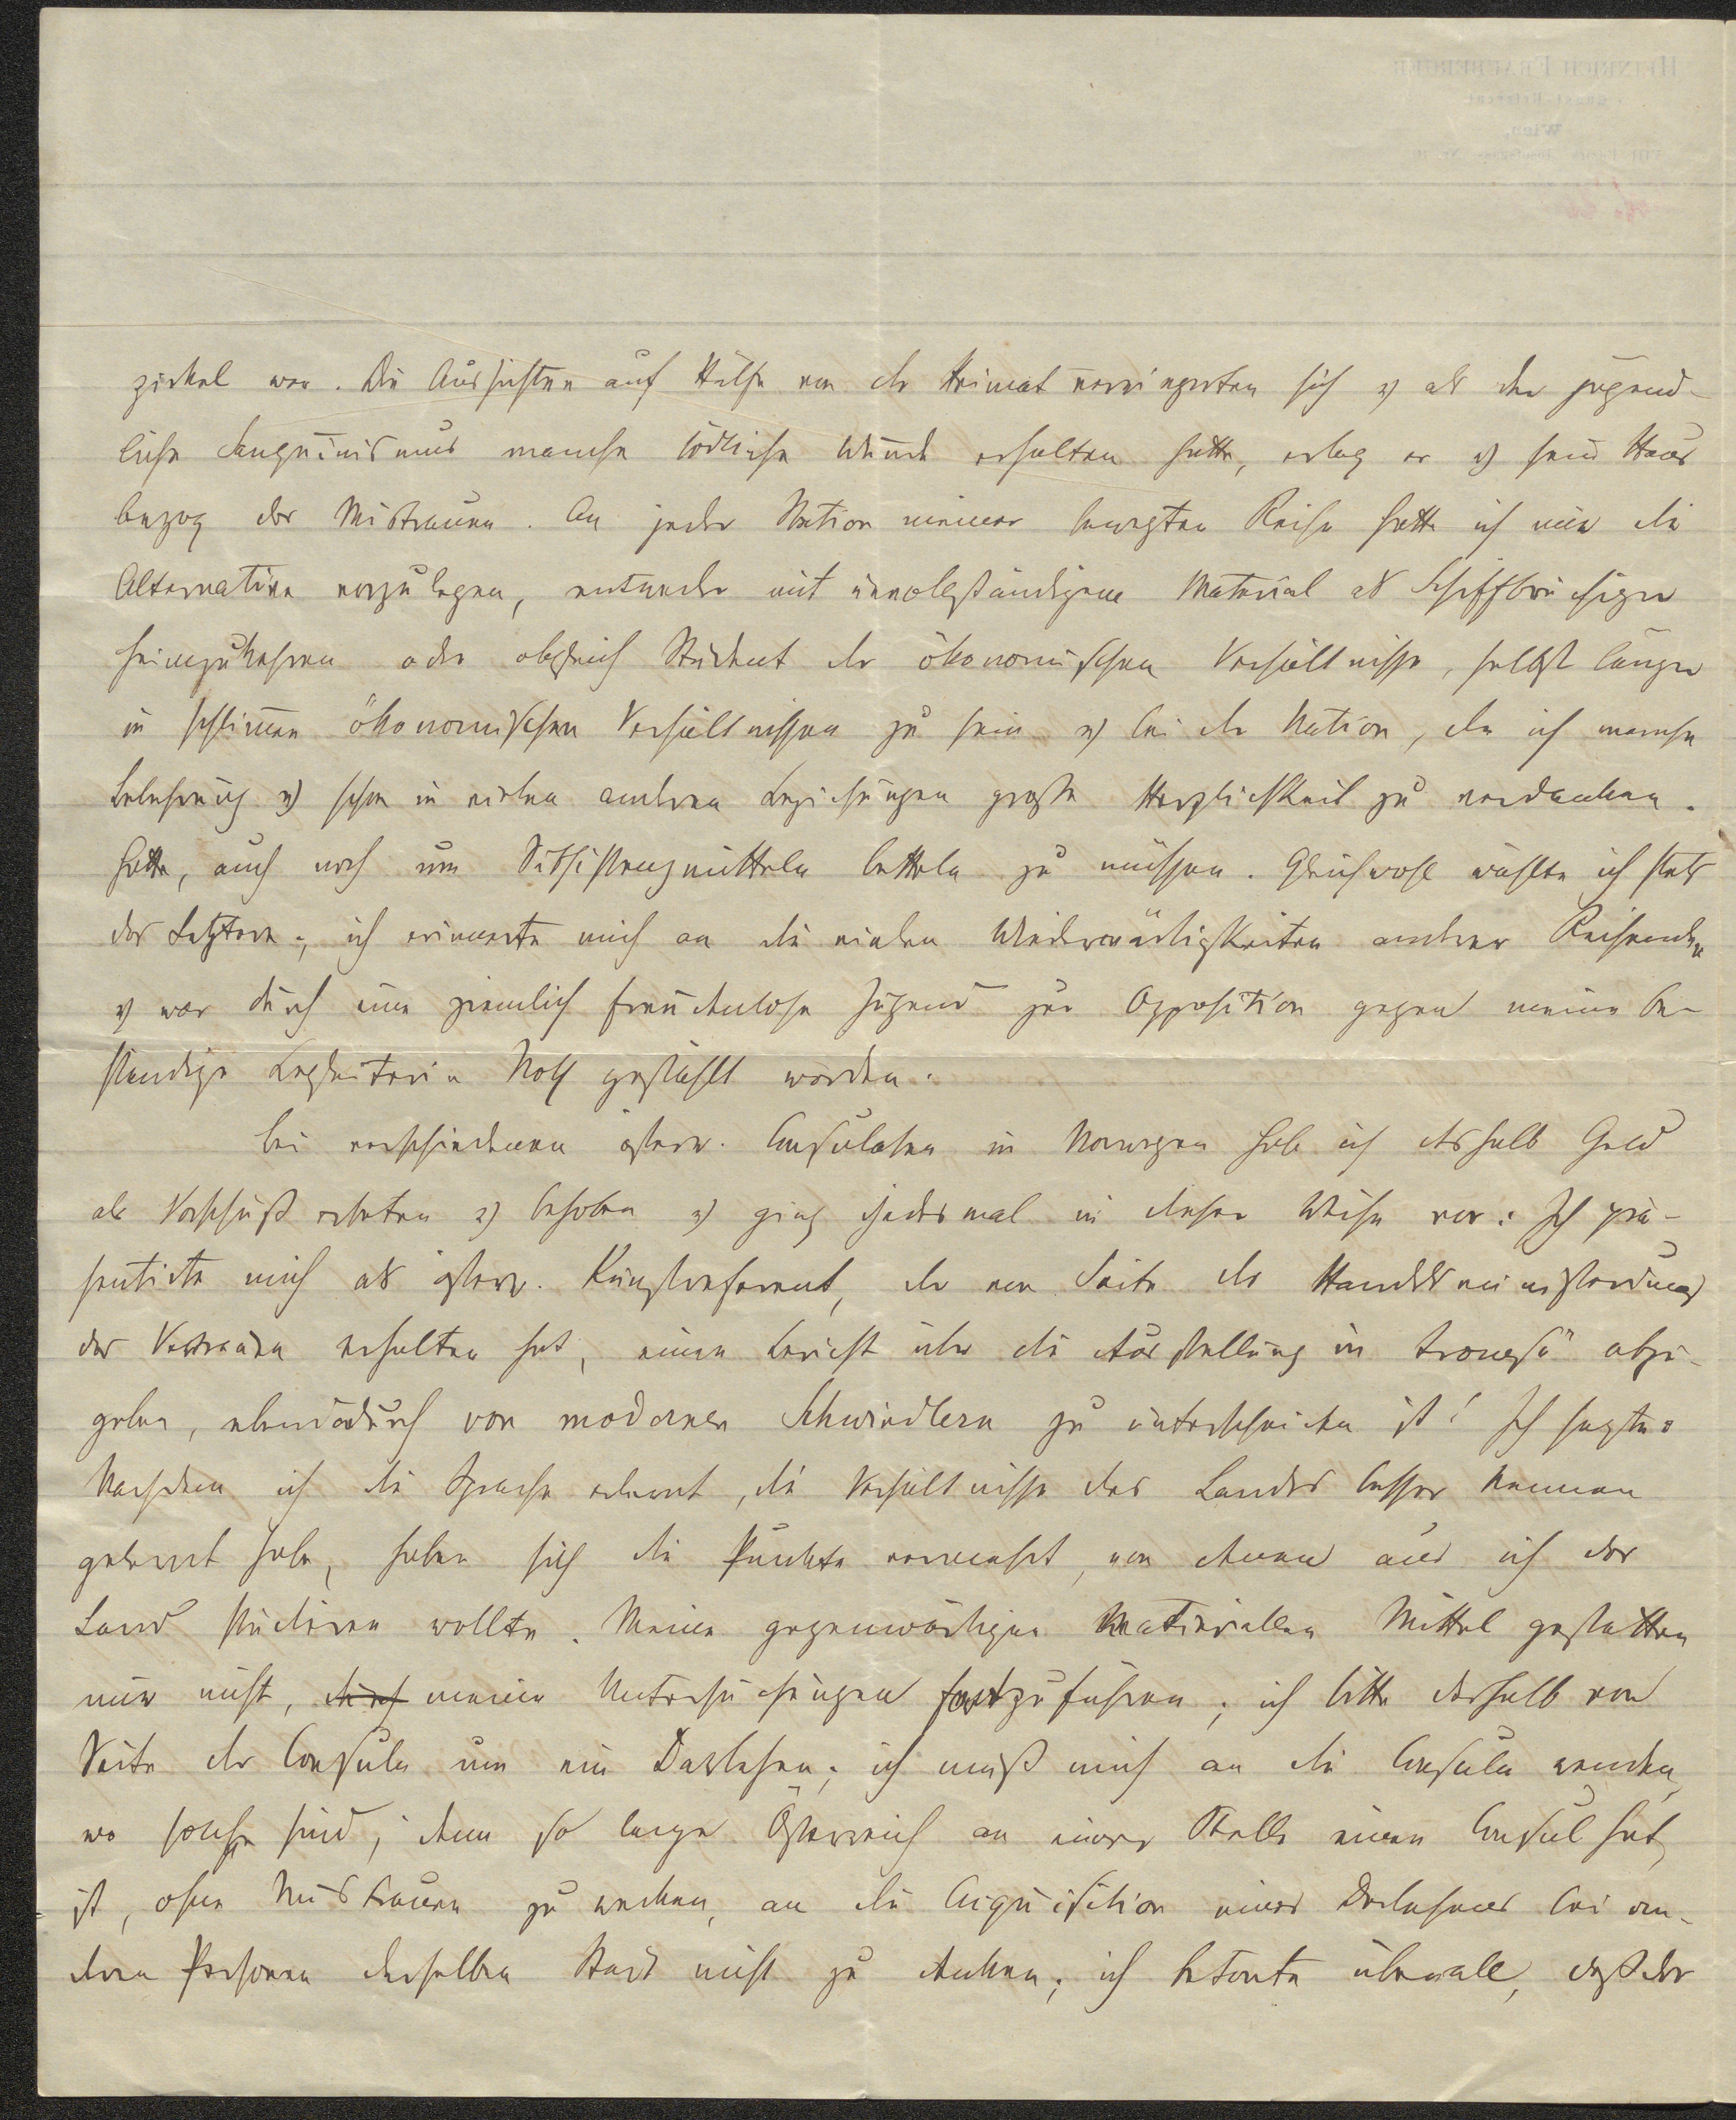 zirkel war. Die Aussichten auf Hülfe von der Heimat verringerten sich u als der jugend-
liche Sanguinismus manche tödliche Wunde erhalten hatte, erlag er u sein Haus
bezog das Mistrauen. An jeder Station meiner bewegten Reise hatte ich mir die
Alternative vorzulegen, entweder mit unvollständigem Material als Schiffbrüchiger
heimzukehren oder obgleich Student der ökonomischen Verhältnisse, selbst länger
in schlimen ökonomischen Verhältnissen zu sein u bei der Nation, der ich manche
Belehrung u schon in vielen anderen Beziehungen große Herzlichkeit zu verdanken
hatte, auch noch um Subsistenzmitteln betteln zu müssen. Gleichwohl wählte ich stets
das Letztere; ich erinnerte mich an die vielen Wiederwärtigkeiten anderer Reisenden
u war durch eine ziemlich freudenlose Jugend zur Opposition gegen meine be-
ständige Begleiterin Noth gestählt worden.
Bei verschiedenen österr. Consulaten in Norwegen habe ich deshalb Geld
als Vorschuß erbeten u behoben u ging jedesmal in dieser Weise vor: Ich prä-
sentirte mich als österr. Kunstreferent, der von Seite des Handelsministeriums
das Vertrauen erhalten hat, einen Bericht über die Ausstellung in Tromsö abzu-
geben, ebendadurch von modernen Schwindlern zu unterscheiden ist! Ich sagte:
Nachdem ich die Sprache erlernt, die Verhältnisse des Landes besser kennen
gelernt habe, haben sich die Punkte vermehrt, von denen aus ich das
Land studieren wollte. Meine gegenwärtigen materiellen Mittel gestatten
mir nicht, meine Untersuchungen fortzuführen; ich bitte deshalb von
Seite der Consuln um ein Darlehen; ich muß mich an die Consuln wenden,
wo solche sind; denn so lange Österreich an einer Stelle einen Consul hat,
ist, ohne Mistrauen zu wecken, an die Acquisition eines Darlehens bei an-
deren Personen derselben Stadt nicht zu denken; ich betonte überall, daß der
HEINRICH FRAUBERGER
Kunst-Referent
Wien,